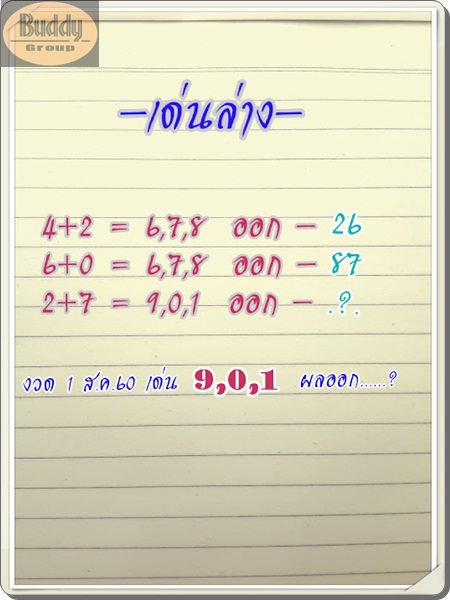 Buddy
Group
-เด่นล่าง-
4+2 = 6,7,8 ออก - 26
6+0 = 6,7,8 ออก - 87
2+7 = 9,0,1 ออก - .?.
งวด 1 ส.ค.60 เด่น 9,0,1 ผลออก......?